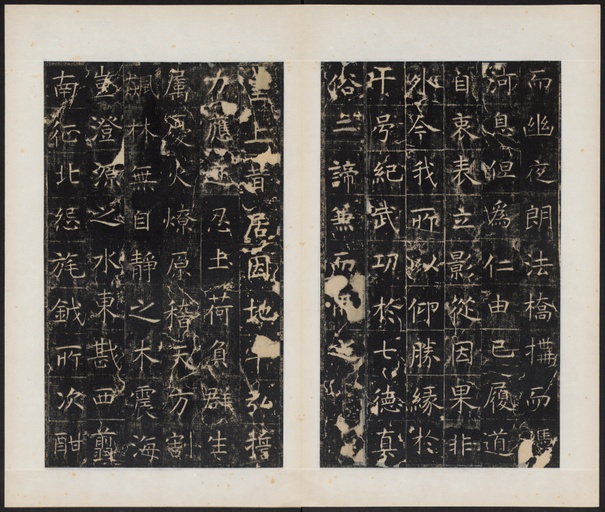 而幽夜朗法橋搆而憑
河息但為仁由己履道
自衷表立影從因果非
外今我所以仰勝緣於
千号紀武功於七德真
俗二諦兼而有之
上昔居因地弘誓
力應忍土荷負群生
屬炎火燎原稽天方割
飆林無自靜之木震海
豈澄源之水東戡西翦
南征北怨旄鉞所次酣